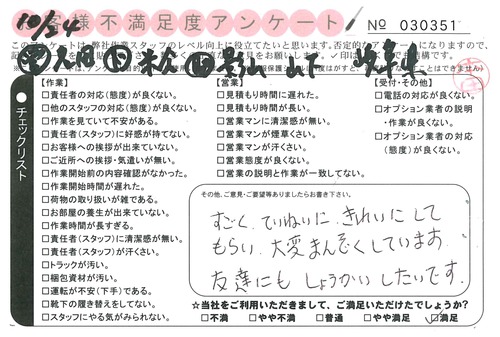 10/24
お客様不満足度アンケート
No 030351
【作業】
□責任者の対応(態度)が良くない。
□他のスタッフの対応(態度)が良くない。
□作業を見ていて不安がある。
□責任者(スタッフ)に好感が持てない。
□お客様への挨拶が出来ていない。
□ご近所への挨拶・気遣いが無い。
□作業開始前の内容確認がなかった。
□作業開始時間が遅れた。
□荷物の取り扱いが雑である。
□お部屋の養生が出来ていない。
□作業時間が長すぎる。
□責任者(スタッフ)に清潔感が無い。
□責任者(スタッフ)が汗くさい。
□トラックが汚い。
□梱包資材が汚い。
□運転が不安(下手)である。
□靴下の履き替えをしてない。
□スタッフにやる気がみられない。
【営業】
□見積もり時間に遅れた。
□見積り時間が長い。
□営業マンに清潔感が無い。
□営業マンが煙草くさい。
□営業マンが汗くさい。
□営業態度が良くない。
□営業の説明と作業が一致してない。
【受付・その他】
□電話の対応が良くない。
□オプション業者の説明
・作業が良くない。
□オプション業者の対応
(態度)が良くない。
チェックリスト
その他、ご意見・ご要望等ありましたらお書き下さい。
すごく、ていねいに、きれいにして
もらい、大変まんぞくしています。
友達にも しょうかいしたいです。
☆当社をご利用いただきまして、ご満足いただけたでしょうか?
□不満 □やや不満 □普通 □やや満足 ☑満足